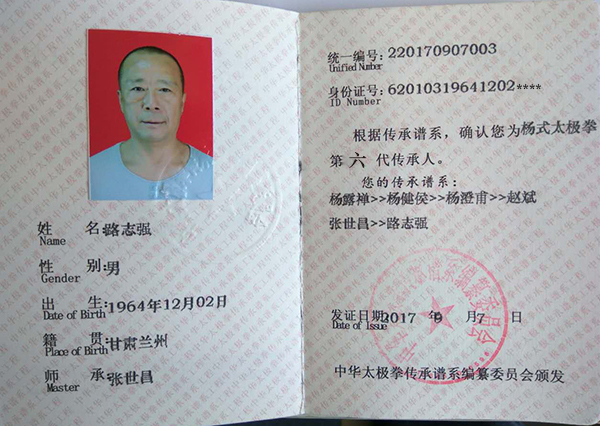 姓 名:路志强
Name
性 别:男
Gender
出 生:1964年12月02日
Date of Birth
籍 贯:甘肃兰州
Place of Birth
师 承:张世昌
Master
统一编号:220170907003
Unified Number
身份证号:62010319641202****
ID Number
根据传承谱系,确认您为杨式太极拳
第 六 代传承人。
您的传承谱系:
杨露禅>>杨健侯>>杨澄甫>>赵斌
张世昌>>路志强
发证日期:2017 9 月7 日
Date of Issue
中华太极拳传承谱系编纂委员会颁发